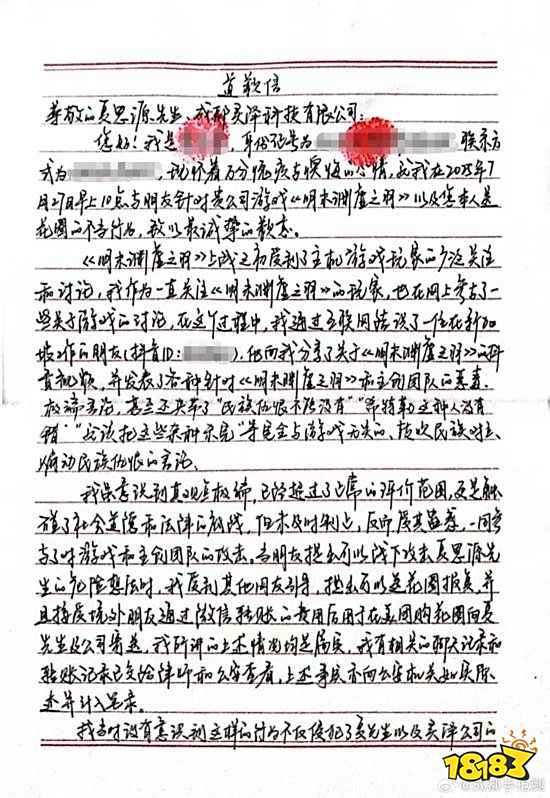 道歉信
尊敬的夏思源先生、成都灵泽科技有限公司:
您好!我是 ,身份证号为 联系方
式为 ,现怀着万分愧疚与懊悔的心情,就我在2025年7
月27日早上10点与朋友针对贵公司游戏《明末渊虚之羽》以及您本人送
花圈的不当行为,致以最诚挚的歉意。
《明末渊虚之羽》上线之初受到了主机游戏玩家的广泛关注
和讨论,我作为一直关注《明末渊虚之羽》的玩家,也在网上参与了一
些关于游戏的讨论,在这个过程中,我通过互联网结识了一位在新加
坡工作的朋友(抖音ID: ),他向我分享了关于《明末渊虚之羽》的抖
音视频,并发表了各种针对《明末渊虚之羽》和主创团队的恶毒、
极端言论,甚至还夹带了“民族仇恨不能没有”“希特勒这种人没有
错”“应该把这些杂种杀完”等完全与游戏无关的、挑唆民族对立、
煽动民族仇恨的言论、
我虽意识到其观点极端,已经超过了正常的评价范围,更是触
碰了社会道德和法律的底线,但未及时制止,反而受其蛊惑,一同参
与了对游戏和主创团队的攻击。当朋友提出可以线下攻击夏思源先
生的危险想法时,我受到其他网友引导,提出可以送花圈报复,并
且接受境外朋友通过微信转账的费用后用于在美团购花圈向夏
先生及公司寄送,我所讲的上述情况均是属实,我有相关的聊天记录和
转账记录已交给律师和公安查看,上述事项亦向公安机关如实陈
述并计入笔录。
我当时没有意识到这样的行为不仅侵犯了夏先生以及灵泽公司的
18183